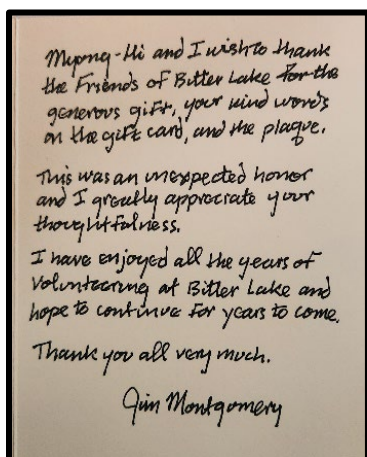 Myong-Hi and I wish to thank
the Friends of Bitter Lake for the
generous gift, your kind words
on the gift card, and the plaque.
This was an unexpected honor
and I greatly appreciate your
thoughtfulness.
I have enjoyed all the years of
volunteering at Bitter Lake and
hope to continue for years to come.
Thank you all very much.
Jim Montgomery